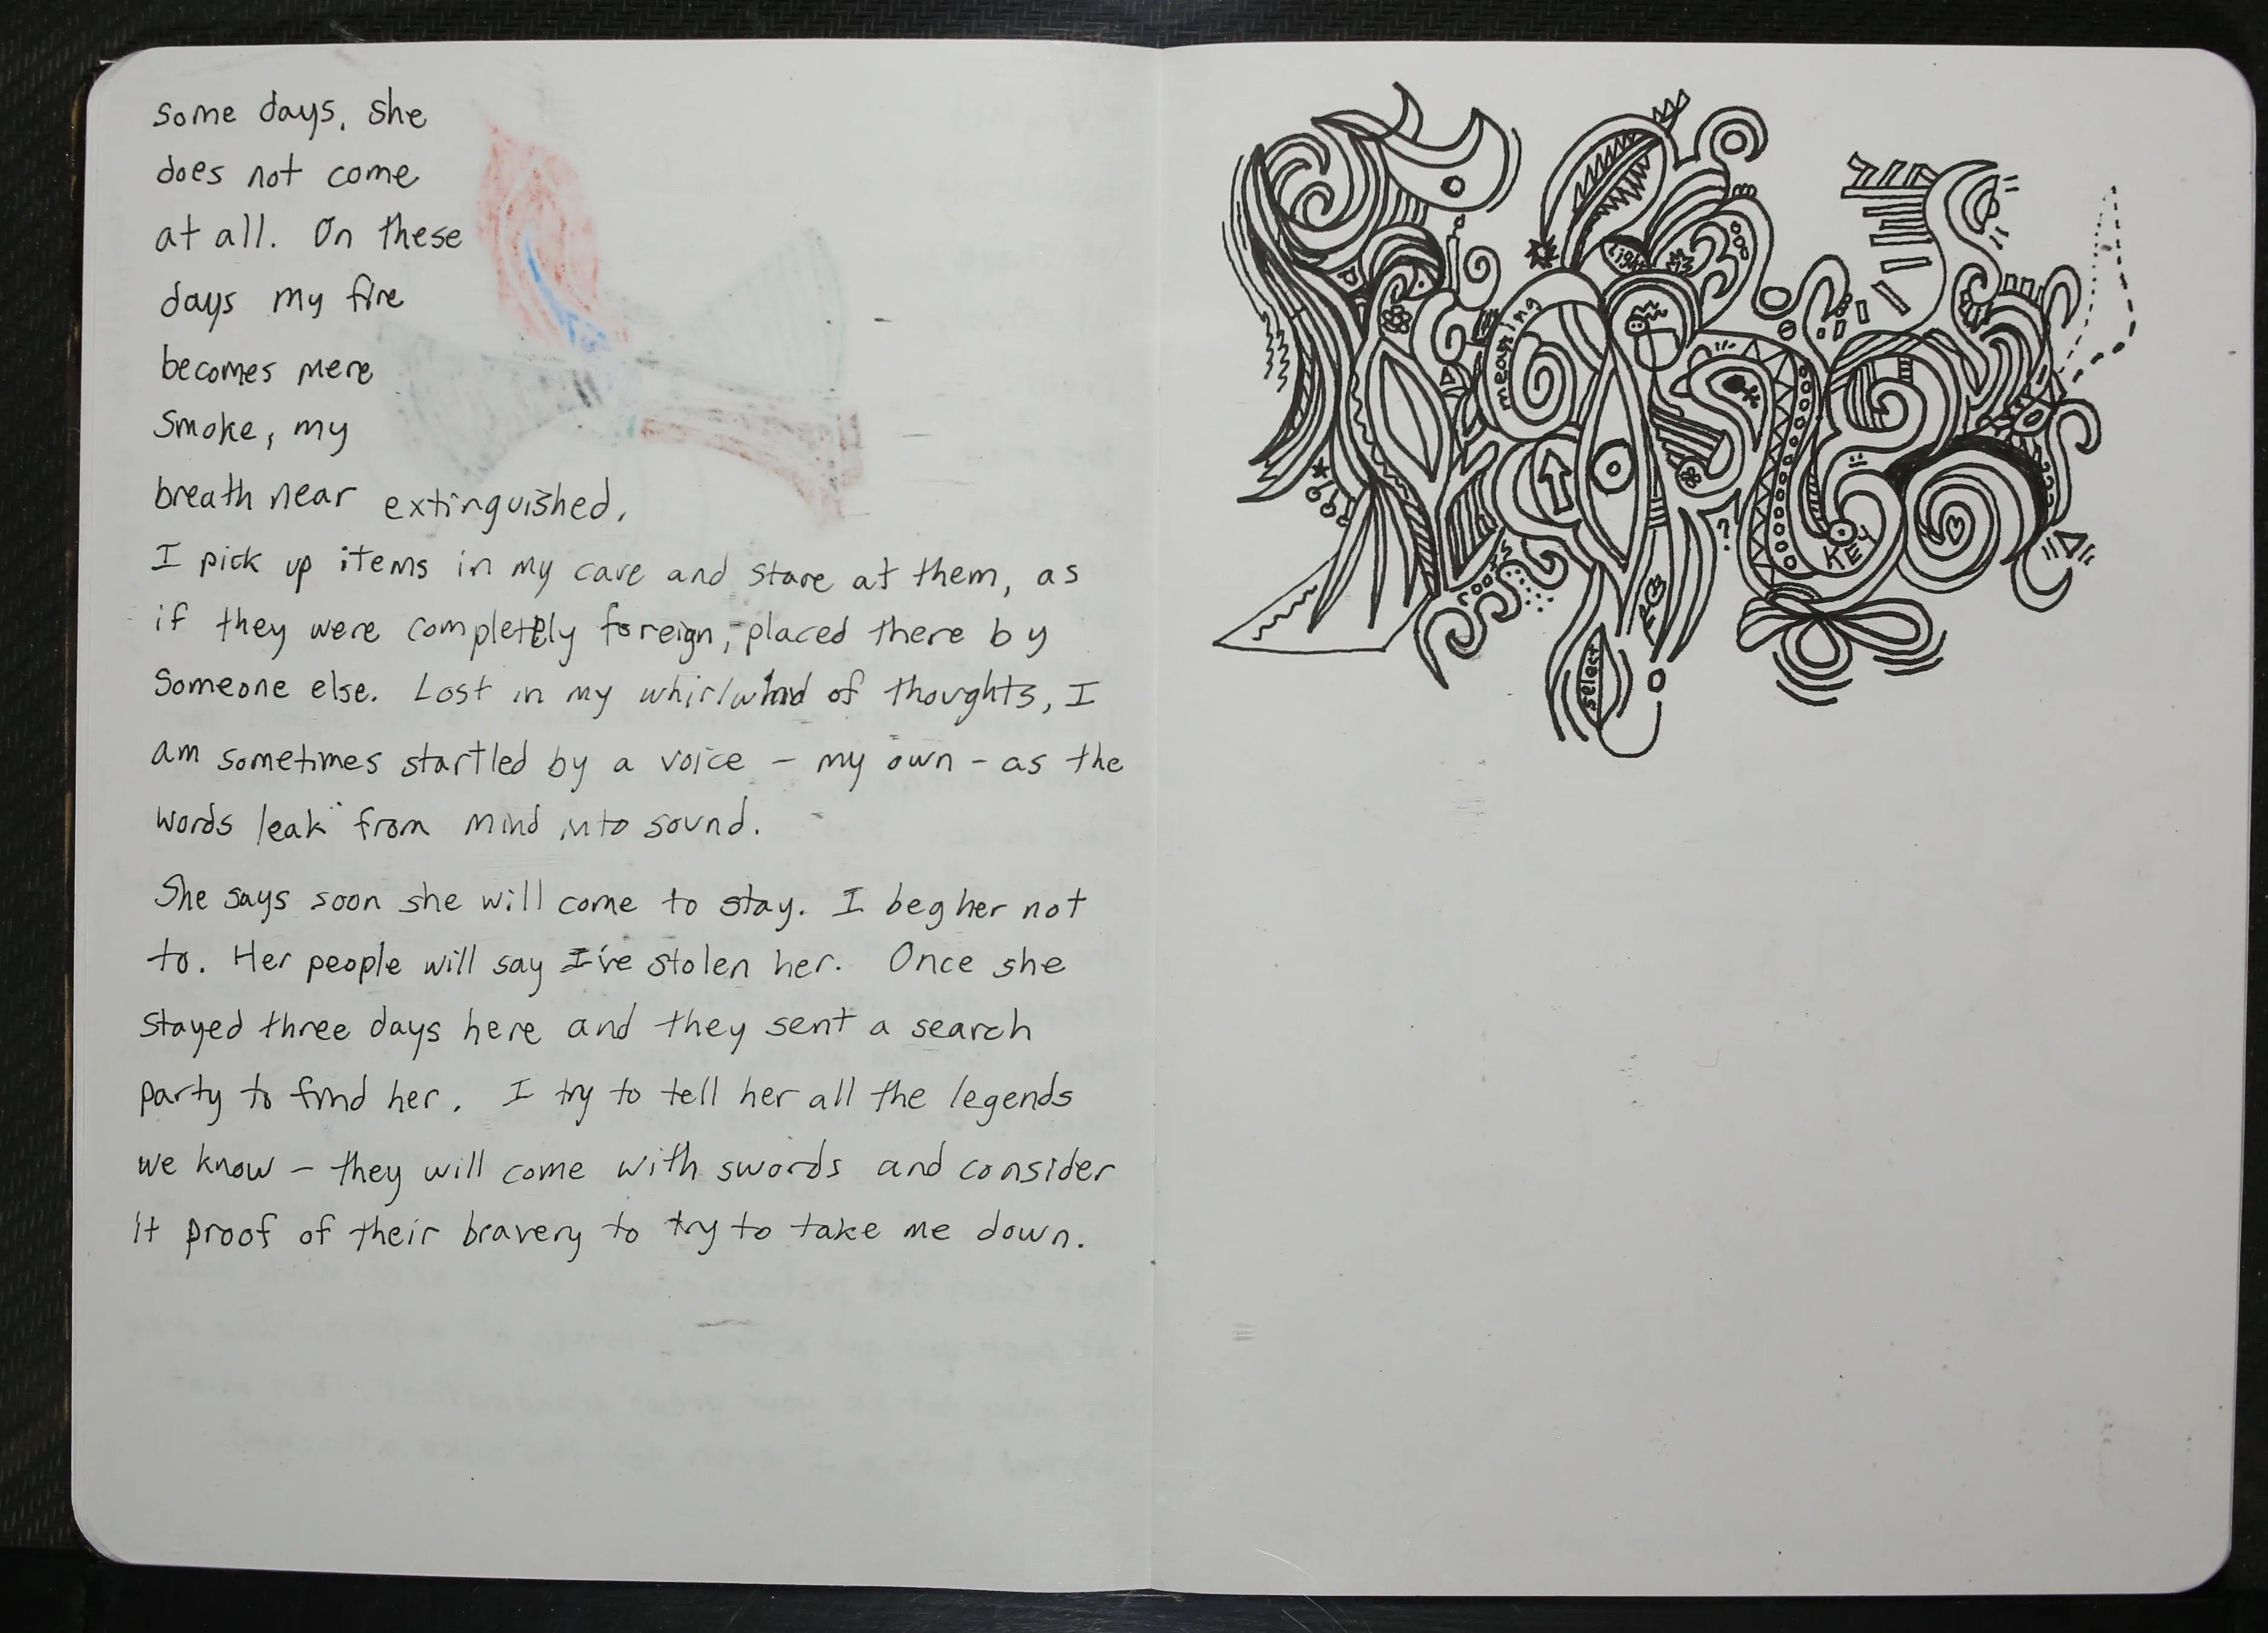 Some days, she
does not come
at all. On these
days my fire
becomes mere
smoke, my
breath near extinguished.
I pick up items in my cave and stare at them, as
if they were completely foreign, placed there by
someone else. Lost in my whirlwind of thoughts, I
am sometimes startled by a voice – my own – as the
words leak from mind into sound.
She says soon she will come to stay. I beg her not
to. Her people will say I've stolen her. Once she
stayed three days here and they sent a search
party to find her. I try to tell her all the legends
we know – they will come with swords and consider
it proof of their bravery to try to take me down.
light
meaning
?
KEY
roots
select